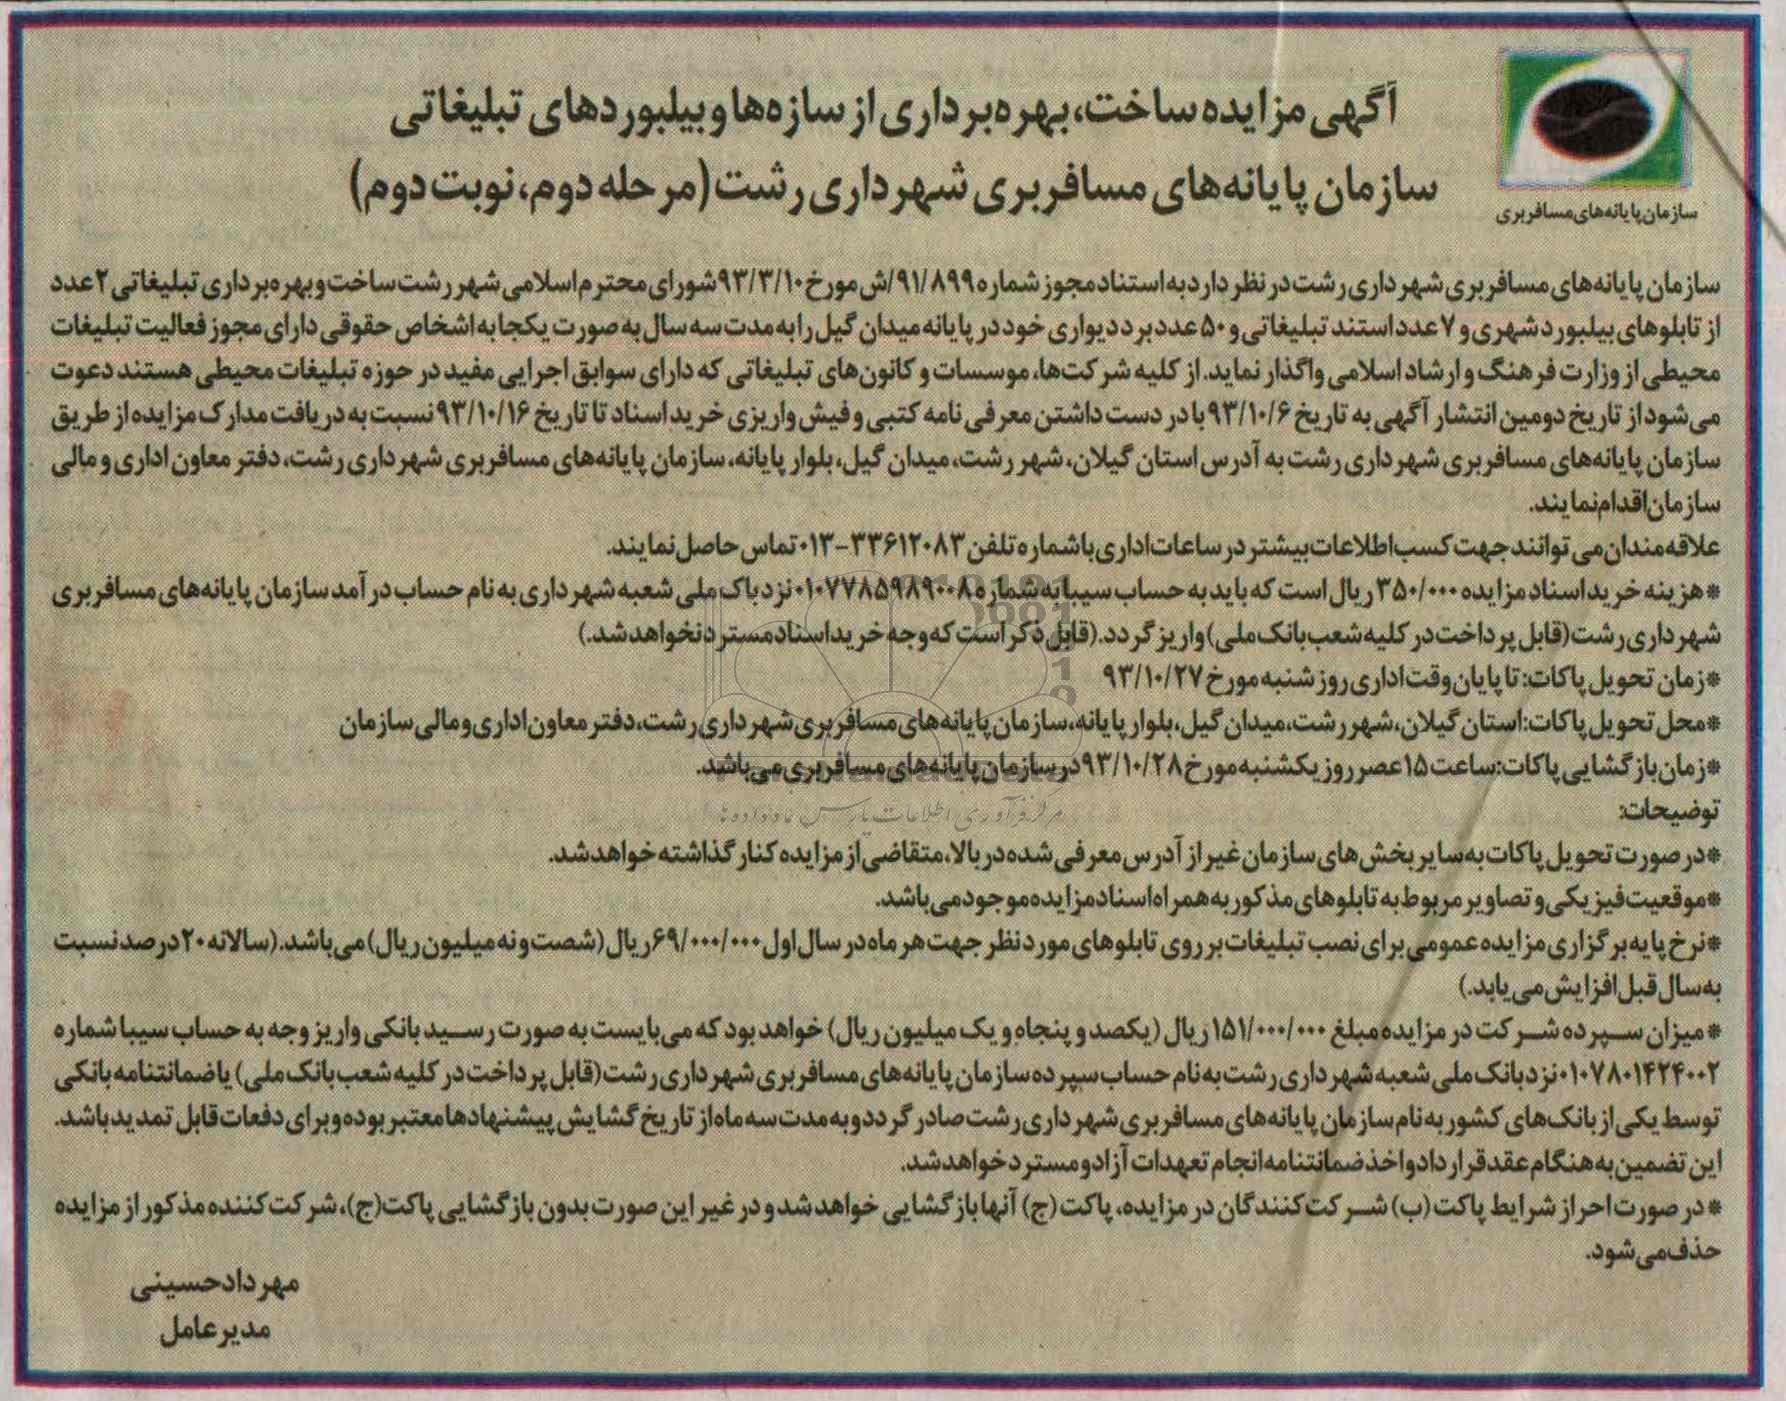 آگهی مزایده ساخت، بهره‌برداری از سازه‌ها و بیلبوردهای تبلیغاتی
سازمان پایانه‌های مسافربری شهرداری رشت (مرحله دوم، نوبت دوم)
سازمان پایانه‌های مسافربری
سازمان پایانه‌های مسافربری شهرداری رشت در نظر دارد به استناد مجوز شماره ۹۱/۸۹۹/ش مورخ ۹۳/۳/۱۰ شورای محترم اسلامی شهر رشت ساخت و بهره‌برداری تبلیغاتی ۲ عدد
از تابلوهای بیلبورد شهری و ۷ عدد استند تبلیغاتی و ۵۰ عدد برد دیواری خود در پایانه میدان گیل را به مدت سه سال به صورت یکجا به اشخاص حقوقی دارای مجوز فعالیت تبلیغات
محیطی از وزارت فرهنگ و ارشاد اسلامی واگذار نماید. از کلیه شرکت‌ها، موسسات و کانون‌های تبلیغاتی که دارای سوابق اجرایی مفید در حوزه تبلیغات محیطی هستند دعوت
می‌شود از تاریخ دومین انتشار آگهی به تاریخ ۹۳/۱۰/۶ با در دست داشتن معرفی نامه کتبی و فیش واریزی خرید اسناد تا تاریخ ۹۳/۱۰/۱۶ نسبت به دریافت مدارک مزایده از طریق
سازمان پایانه‌های مسافربری شهرداری رشت به آدرس استان گیلان، شهر رشت، میدان گیل، بلوار پایانه، سازمان پایانه‌های مسافربری شهرداری رشت، دفتر معاون اداری و مالی
سازمان اقدام نمایند.
علاقه‌مندان می‌توانند جهت کسب اطلاعات بیشتر در ساعات اداری با شماره تلفن ۳۳۶۱۲۰۸۳-۰۱۳ تماس حاصل نمایند.
*هزینه خرید اسناد مزایده ۳۵۰/۰۰۰ ریال است که باید به حساب سیبا به شماره ۰۱۰۷۷۸۵۹۸۹۰۰۸ نزد باک ملی شعبه شهرداری به نام حساب درآمد سازمان پایانه‌های مسافربری
شهرداری رشت (قابل پرداخت در کلیه شعب بانک ملی) واریز گردد. (قابل ذکر است که وجه خرید اسناد مسترد نخواهد شد.)
*زمان تحویل پاکات: تا پایان وقت اداری روز شنبه مورخ ۹۳/۱۰/۲۷
*محل تحویل پاکات: استان گیلان، شهر رشت، میدان گیل، بلوار پایانه، سازمان پایانه‌های مسافربری شهرداری رشت، دفتر معاون اداری و مالی سازمان
*زمان بازگشایی پاکات: ساعت ۱۵ عصر روز یکشنبه مورخ ۹۳/۱۰/۲۸ در سازمان پایانه‌های مسافربری می‌باشد.
مرکز فرآوری اطلاعات پارس نماد داده‌ها
توضیحات:
*در صورت تحویل پاکات به سایر بخش‌های سازمان غیر از آدرس معرفی شده در بالا، متقاضی از مزایده کنار گذاشته خواهد شد.
*موقعیت فیزیکی و تصاویر مربوط به تابلوهای مذکور به همراه اسناد مزایده موجود می‌باشد.
*نرخ پایه برگزاری مزایده عمومی برای نصب تبلیغات بر روی تابلوهای مورد نظر جهت هر ماه در سال اول ۶۹/۰۰۰/۰۰۰ ریال (شصت و نه میلیون ریال) می‌باشد. (سالانه ۲۰ درصد نسبت
به سال قبل افزایش می‌یابد.)
*میزان سپرده شرکت در مزایده مبلغ ۱۵۱/۰۰۰/۰۰۰ ریال (یکصد و پنجاه و یک میلیون ریال) خواهد بود که می‌بایست به صورت رسید بانکی واریز وجه به حساب سیبا شماره
۰۱۰۷۸۰۱۴۲۴۰۰۲ نزد بانک ملی شعبه شهرداری رشت به نام حساب سپرده سازمان پایانه‌های مسافربری شهرداری رشت (قابل پرداخت در کلیه شعب بانک ملی) یا ضمانتنامه بانکی
توسط یکی از بانک‌های کشور به نام سازمان پایانه‌های مسافربری شهرداری رشت صادر گردد و به مدت سه ماه از تاریخ گشایش پیشنهادها معتبر بوده و برای دفعات قابل تمدید باشد.
این تضمین به هنگام عقد قرارداد و اخذ ضمانتنامه انجام تعهدات آزاد و مسترد خواهد شد.
*در صورت احراز شرایط پاکت (ب) شرکت‌کنندگان در مزایده، پاکت (ج) آنها بازگشایی خواهد شد و در غیر این صورت بدون بازگشایی پاکت (ج)، شرکت‌کننده مذکور از مزایده
حذف می‌شود.
مهرداد حسینی
مدیرعامل